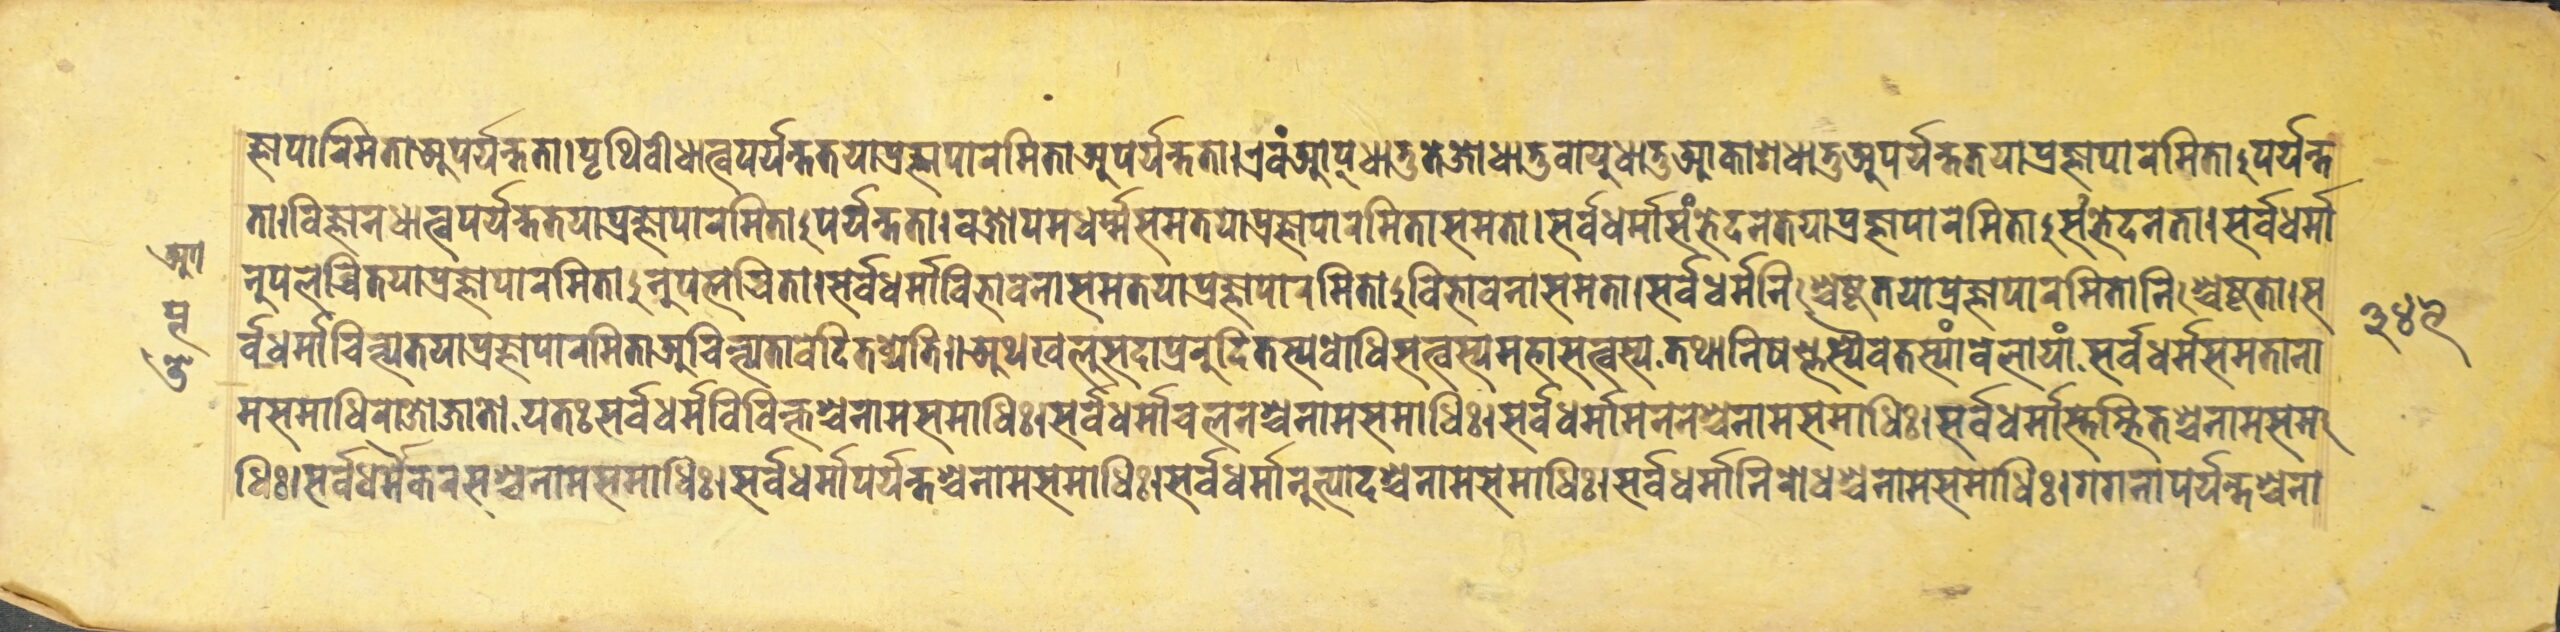 ज्ञापारमिताअपर्यन्तता।पृथिवीधात्वपर्यन्ततयाप्रज्ञापारमिताअपर्यन्तता।एवंआप्धातुतेजोधातुवायुधातुआकाशधातुअपर्यन्ततयाप्रज्ञापारमिताऽपर्यन्त
ता।विज्ञानधात्वपर्यन्ततयाप्रज्ञापारमिताऽपर्यन्तता।वज्रोपमधर्म्मसमतयाप्रज्ञापारमितासमता।सर्वधर्मासंभेदनतयाप्रज्ञापारमिताऽसंभेदनता।सर्वधर्मा
नुपलब्धितयाप्रज्ञापारमिताऽनुपलब्धिता।सर्वधर्माविभावनासमतयाप्रज्ञापारमिताऽविभावनासमता।सर्वधर्मनिश्चेष्टतयाप्रज्ञापारमितानिश्चेष्टता।स
र्वधर्माचिन्त्यतयाप्रज्ञापारमिताअचिन्त्यतावेदितव्येति॥अथखलुसदाप्ररुदितस्यबोधिसत्त्वस्यमहासत्त्वस्य.तथानिषण्णस्यैवतस्यांवेलायां.सर्वधर्मसमताना
मसमाधिराजोजातो.यतःसर्वधर्मविविक्तश्चनामसमाधिः।सर्वधर्माचलनश्चनामसमाधिः।सर्वधर्मामननश्चनामसमाधिः।सर्वधर्मास्तम्भितश्चनामसमा
धिः।सर्वधर्मैकरसश्चनामसमाधिः।सर्वधर्मापर्यन्तश्चनामसमाधिः।सर्वधर्मानुत्पादश्चनामसमाधिः।सर्वधर्मानिरोधश्चनामसमाधिः।गगनापर्यन्तश्चना